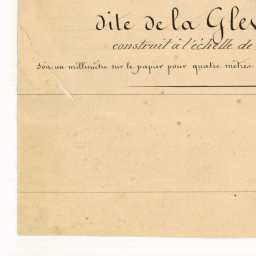 dite de la Gle
construit à l'échelle de
Soit un millimètre sur le papier pour quatre mètres